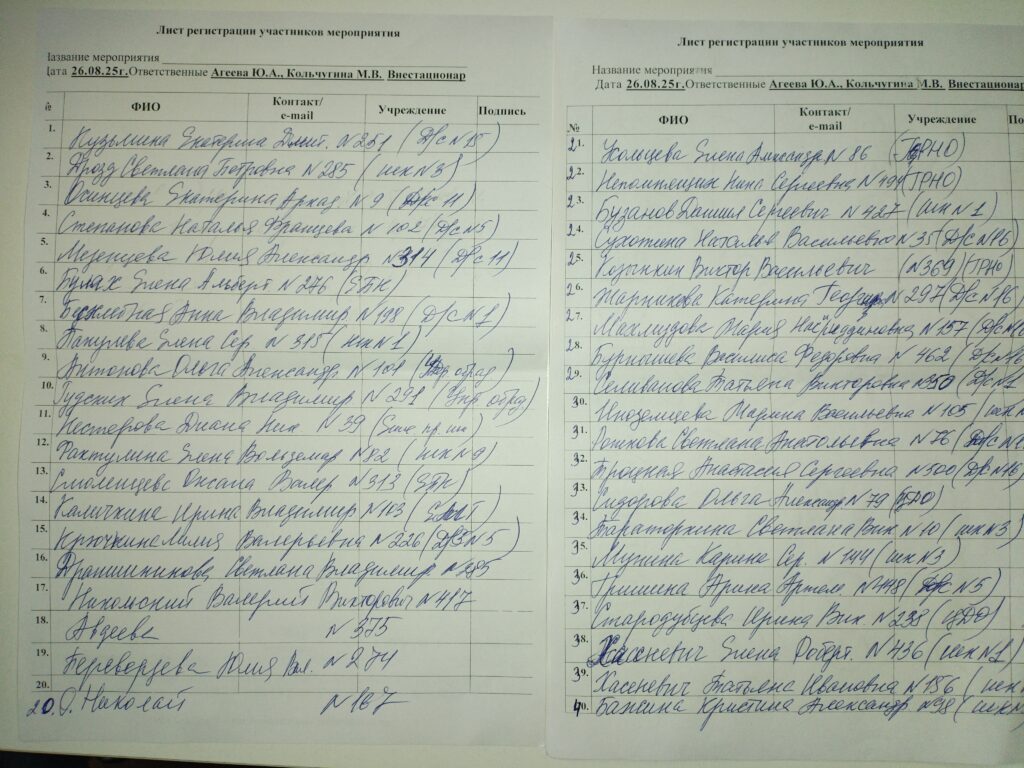 Лист регистрации участников мероприятия
Название мероприятия
Дата 26.08.25г. Ответственные Агеева Ю.А., Кольчугина М.В. Внестационар
№ ФИО Контакт/ e-mail Учреждение Подпись
1. Кузьмина Екатерина Дмит. №251 (Д/с №15)
2. Дрозд Светлана Петровна №285 (шк №3)
3. Осинцева Екатерина Аркад. №9 (Д/с 11)
4. Степанова Наталья Францевна №102 (Д/с №5)
5. Мезенцева Юлия Александр №314 (Д/с 11)
6. Булах Елена Альберт №276
7. Анна Владимир №198 (Д/с №1)
8. Елена Сер. №315 (шк №1)
9. Антонова Ольга Александр. №101 (Упр образ)
10. Гудских Елена Владимир №291 (Упр образ)
11. Нестерова Диана Ник №39
12. Елена Вольдемар №82 (шк №9)
13. Смоленцева Оксана Валер №313
14. Каличкина Ирина Владимир №103
15. Крючкина Лилия Валерьевна №226 (Д/с №5)
16. Драпшникова Светлана Владимир №285
17. Никольский Валерий Викторович №417
18. Авдеева №375
19. Переверзева Юлия Вл. №274
20.
20. О. Николай №167
Лист регистрации участников мероприятия
Название мероприятия
Дата 26.08.25г. Ответственные Агеева Ю.А., Кольчугина М.В. Внестационар
№ ФИО Контакт/ e-mail Учреждение
21. Кольцева Елена Александр №86 (ГРНО)
22. Непомнящих Нина Сергеевна №494 (ГРНО)
23. Бузанов Даниил Сергеевич №427 (шк №1)
24. Сухотина Наталья Васильевна №35 (Д/с №16)
25. Козынкин Виктор Васильевич (№369) (ГРНО)
26. Жарникова Катерина Георг №297 (Д/с №16)
27. Мария №157 (Д/с №16
28. Бурнашева Василиса Федоровна №462 (Д/с №16
29. Селиванова Татьяна Викторовна №350 (Д/с №1
30. Иноземцева Марина Васильевна №105 (шк
31. Рожкова Светлана Анатольевна №76 (Д/с
32. Троцкая Анастасия Сергеевна №500 (Д/с №16)
33. Сидорова Ольга Александр №79 (ЦДО)
34. Тараторкина Светлана Вик №10 (шк №3)
35. Мунина Карина Сер. №144 (шк №3)
36. Гришина Арина Артем. №448 (Д/с №5)
37. Стародубцева Ирина Вик №238 (ЦДО)
38. Хасневич Елена Роберт. №436 (шк №1)
39. Хасневич Татьяна Ивановна №156 (шк
40. Бажина Кристина Александр №98 (шк №